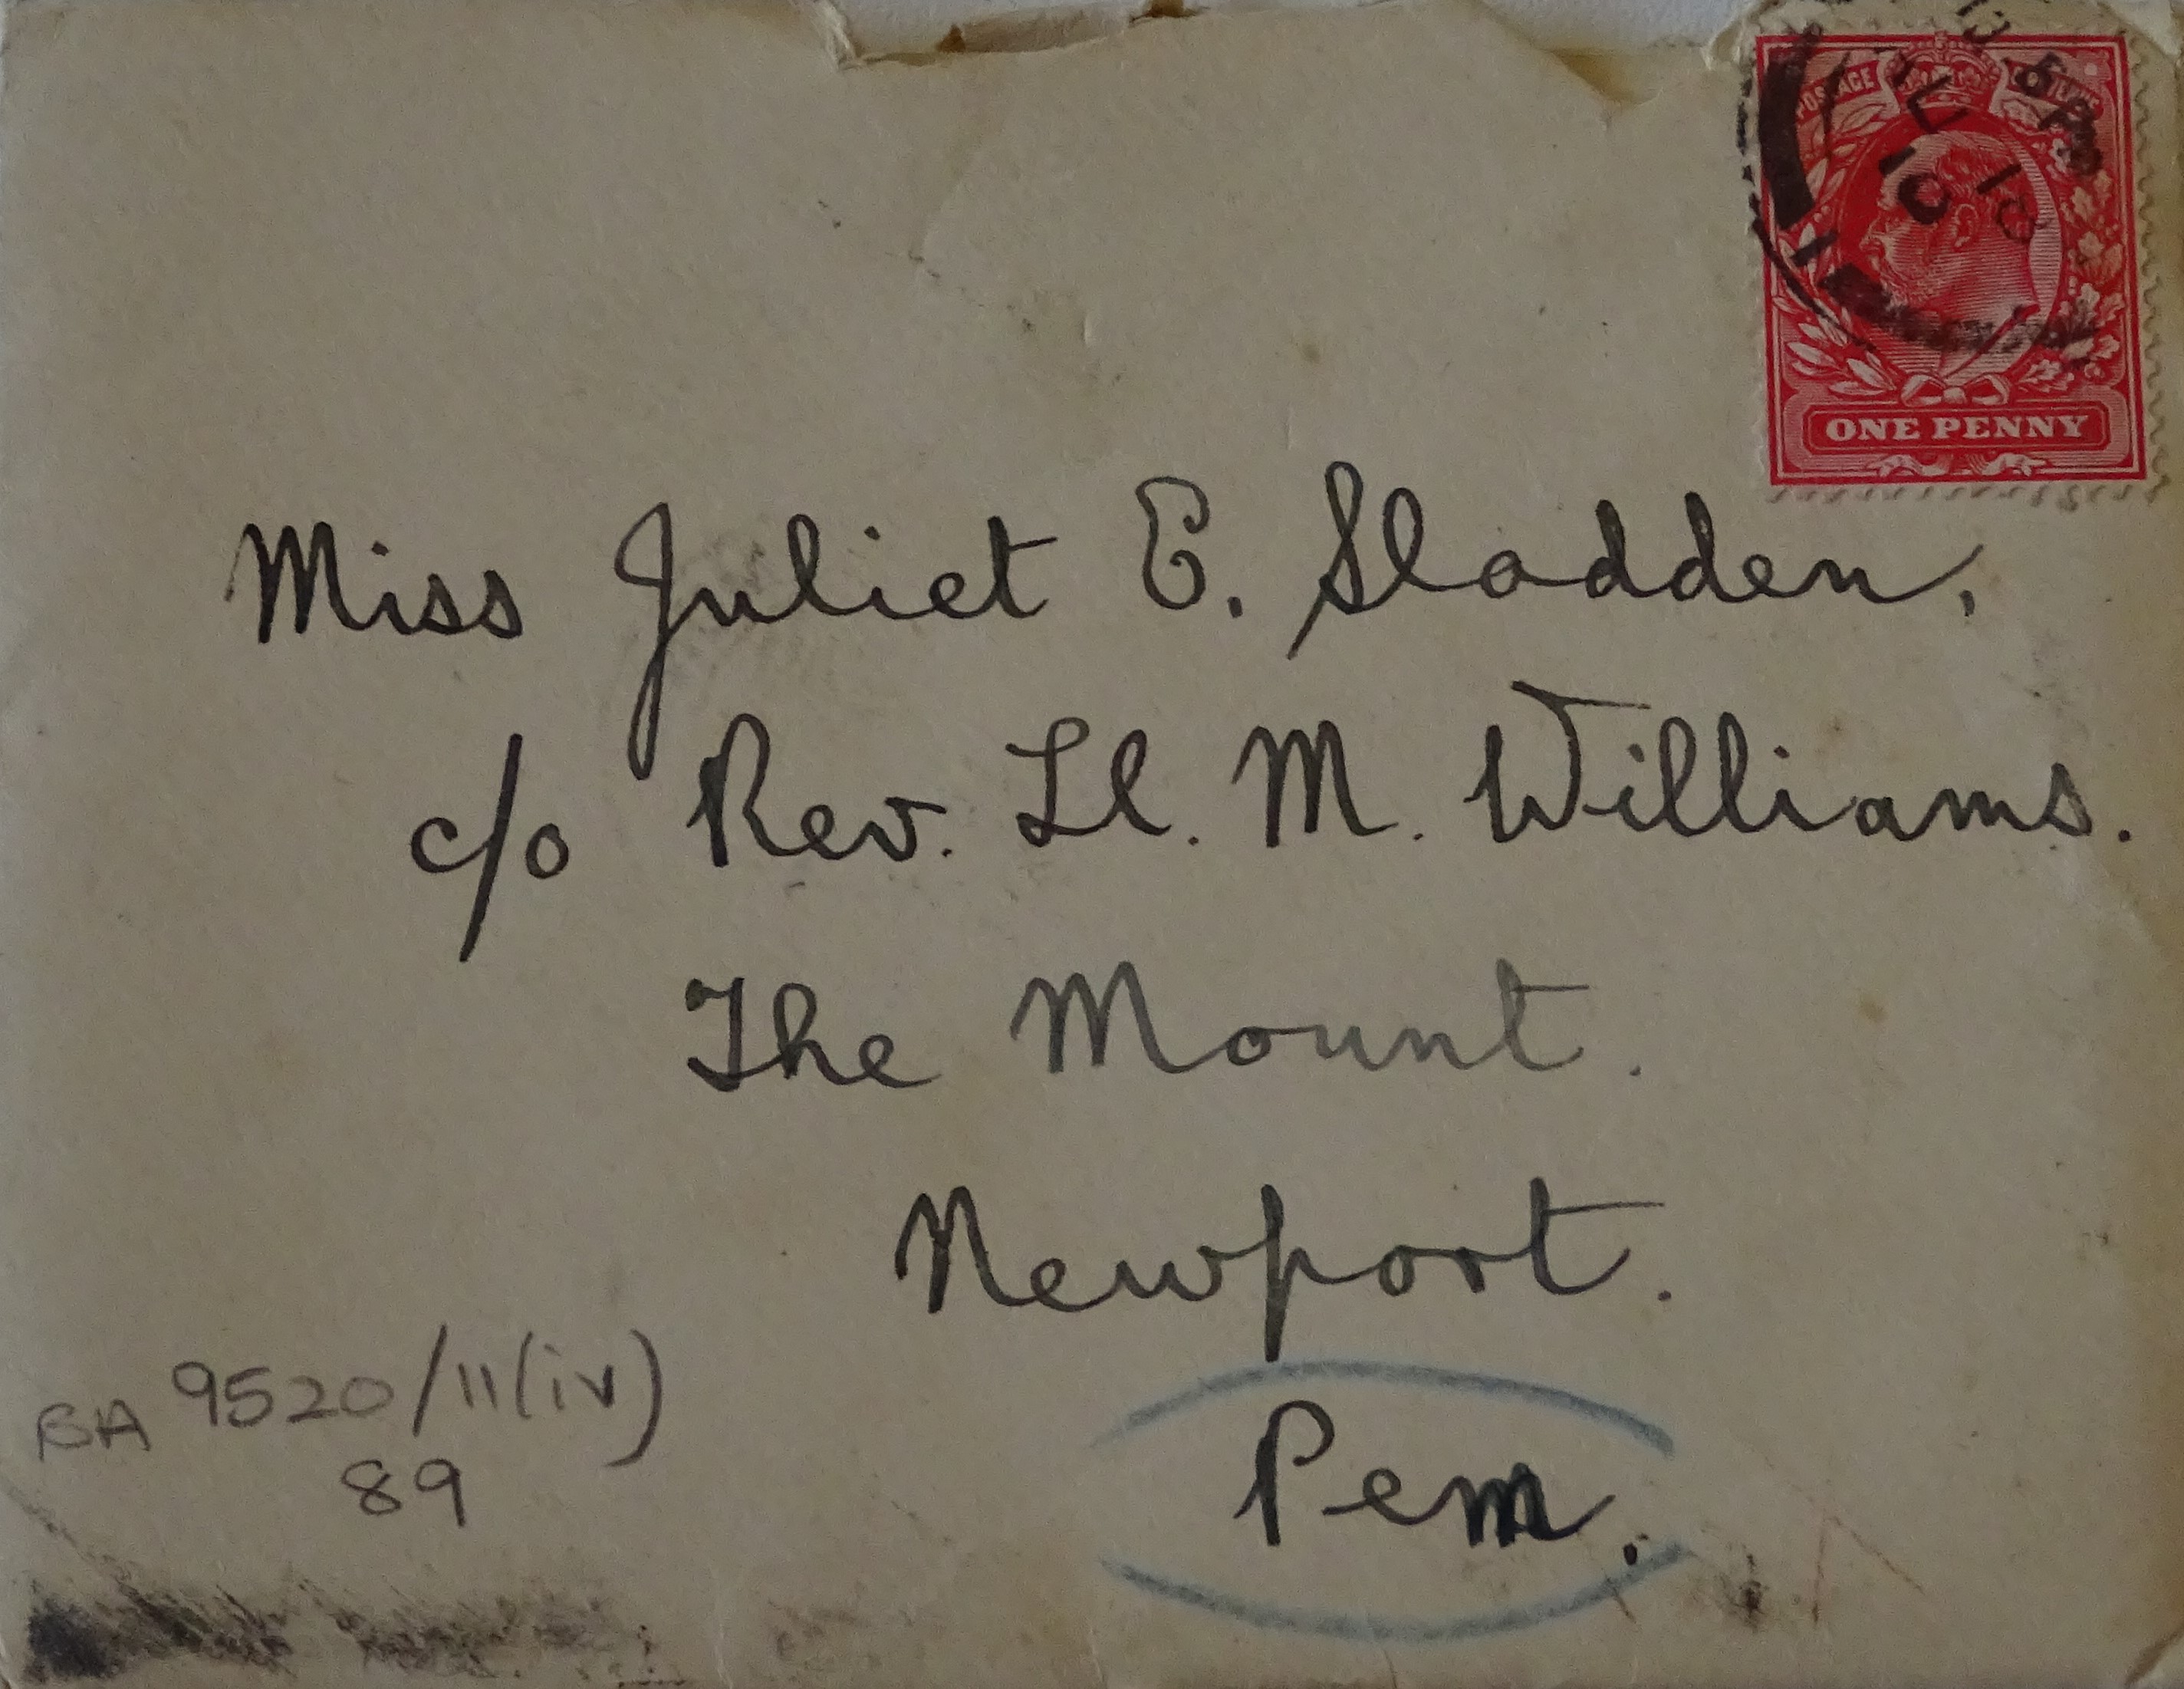 POSTAGE
10
ONE PENNY
Miss Juliet E. Sladden,
c/o Rev. Ll. M. Williams.
The Mount.
Newport.
Pem.
BA 9520/11(iv)
89